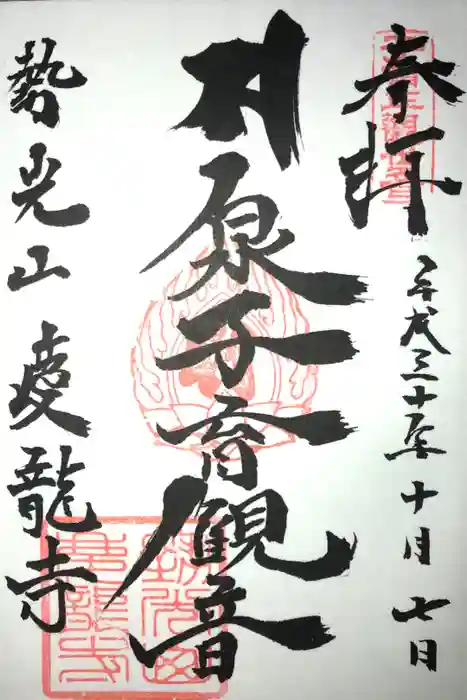 奉拝
平成三十年十月七日
原子育観音
勢光山 慶龍寺